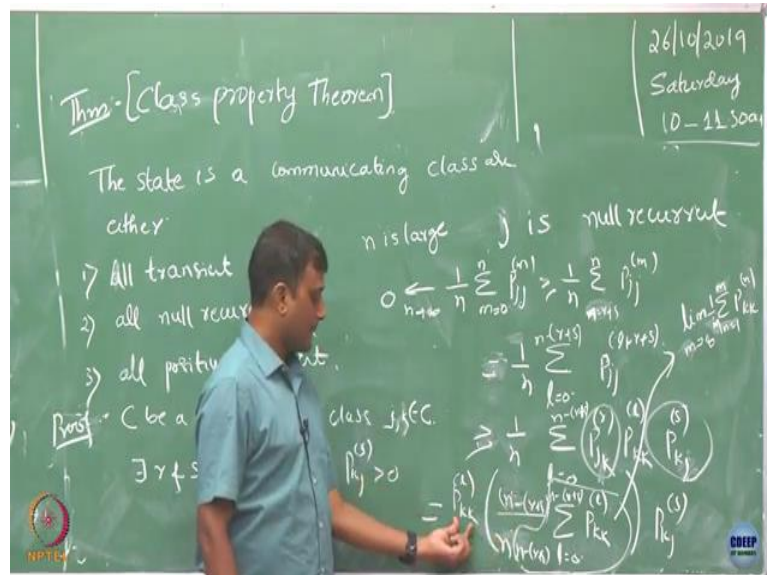 26/10/2019
Saturday
10-11.30am
Thm:- [Class property Theorem]
The state is a communicating class are
either
1) All transient
2) all null recu
3) all positi t.
n is large j is null recurrent
0 ←_{n→∞} \frac{1}{n} \sum_{m=0}^{n} P_{jj}^{(m)} ≥ \frac{1}{n} \sum_{m=r+s}^{n} P_{jj}^{(m)}
= \frac{1}{n} \sum_{l=0}^{n-(r+s)} P_{jj}^{(l+r+s)}
≥ \frac{1}{n} \sum_{l=0}^{n-(r+s)} P_{jk}^{(r)} P_{kk}^{(l)} P_{kj}^{(s)}
Proof:- C be a class j,k∈C.
∃ r & s P_{kj}^{(s)} > 0
\sum_{l=0}^{n-(r+s)} P_{kk}^{(l)} ) P_{kj}^{(s)}
NPTEL
CDEEP
IIT BOMBAY